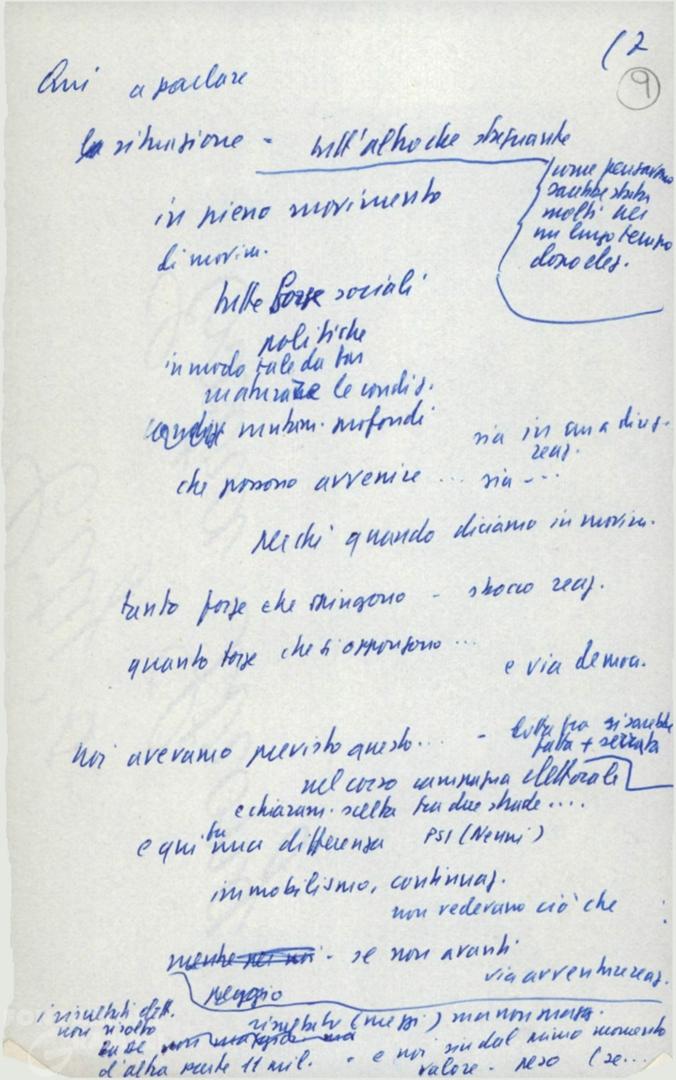 12
9
Qui a parlare
la situazione - tutt'altro che stagnante
come pensavano
sarebbe stata
molti per
un lungo tempo
dopo elez.
in pieno movimento
di movim.
tutte forze sociali
politiche
in modo tale da far
maturare le condiz.
mutam. profondi
sia in una direz.
reaz.
che possono avvenire ... sia - ..
perché quando diciamo in movim.
tanto forze che spingono - sbocco reaz.
quanto forze che si oppongono ...
e via democ.
noi avevamo previsto questo... - lotta fra si sarebbe
fatta + serrata
nel corso campagna elettorale
e chiaram. scelta fra due strade ....
e qui fu una differenza PSI (Nenni)
immobilismo, continuaz.
non vedevano ciò che :
mentre per noi - se non avanti
via avventure reaz.
peggio
i risultati elett. risultato (mezzi) ma non mossa.
non risolto
d'altra parte 11 mil. - e noi sin dal primo momento
valore - peso (se...